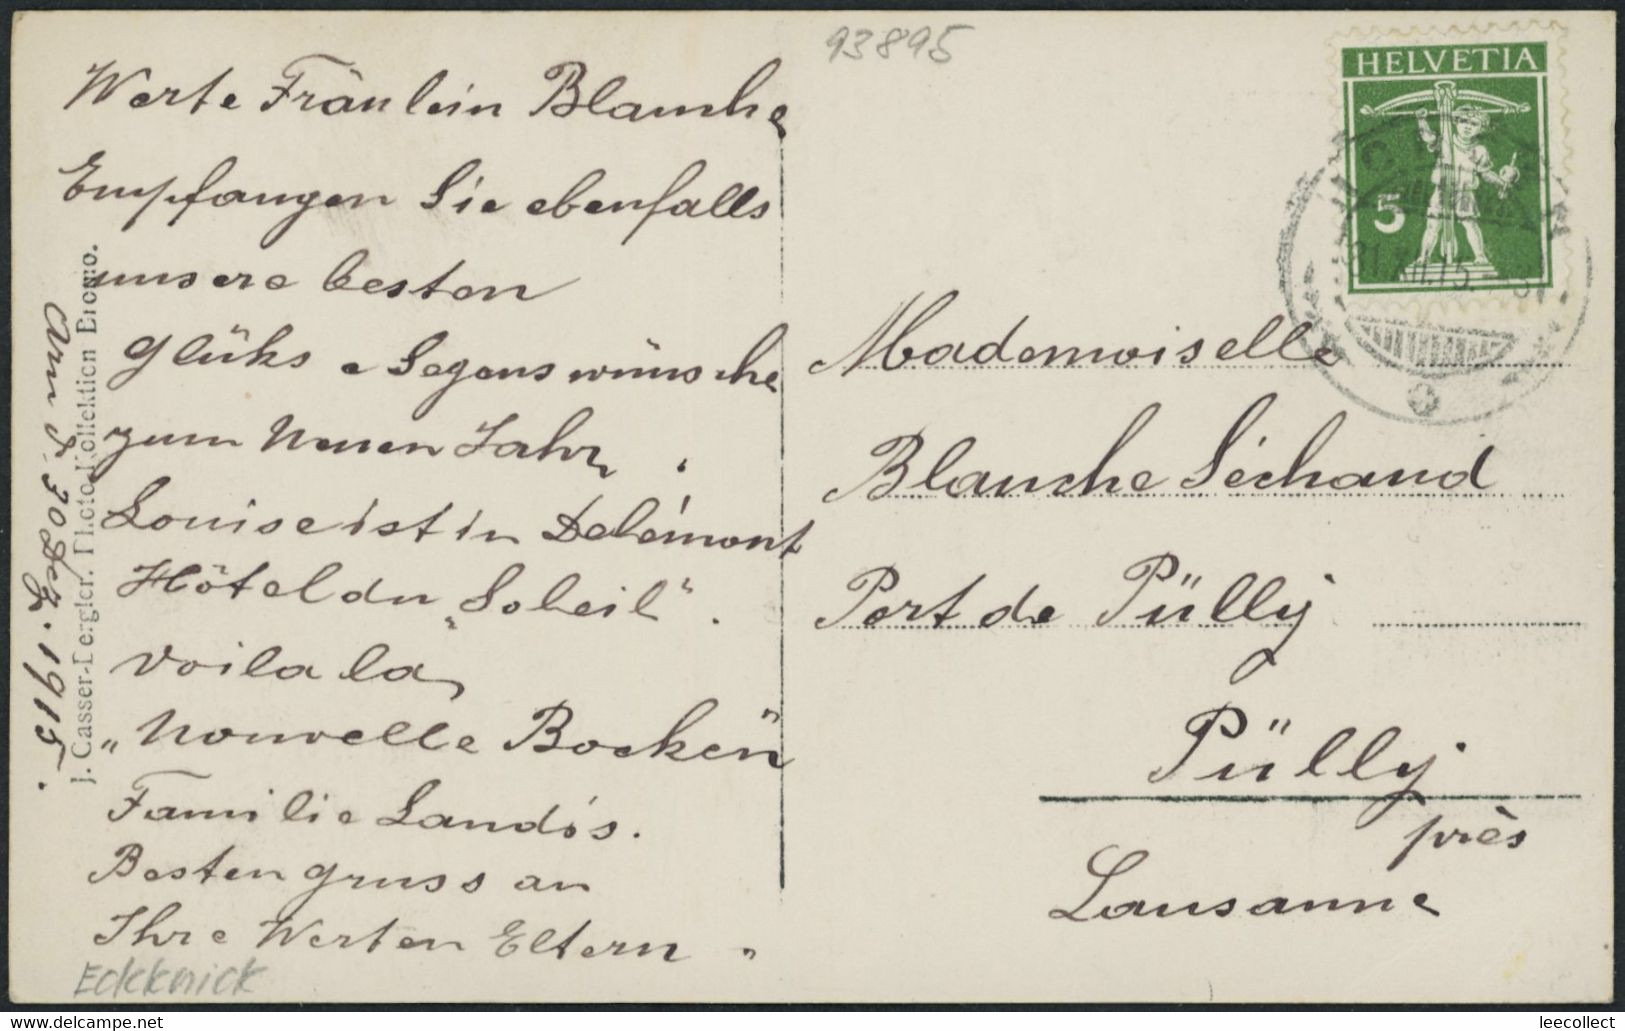 93895
Werte Fräulein Blanche
Empfangen Sie ebenfalls
unsere besten
Glüks e Segenswünsche
zum Neuen Jahr,
Louise ist in Delémont
Hôtel du „Soleil".
Voila la
„Nouvelle Bocken"
Familie Landis.
Besten gruss an
Ihre Werten Eltern.
Eckknick
d. 30 Dez. 1915.
Photo-Kollektion Bromo.
HELVETIA
5
31.XII.15.
Mademoiselle
Blanche Séchaud
Port de Pülly
Pülly
près
Lausanne
leecollect